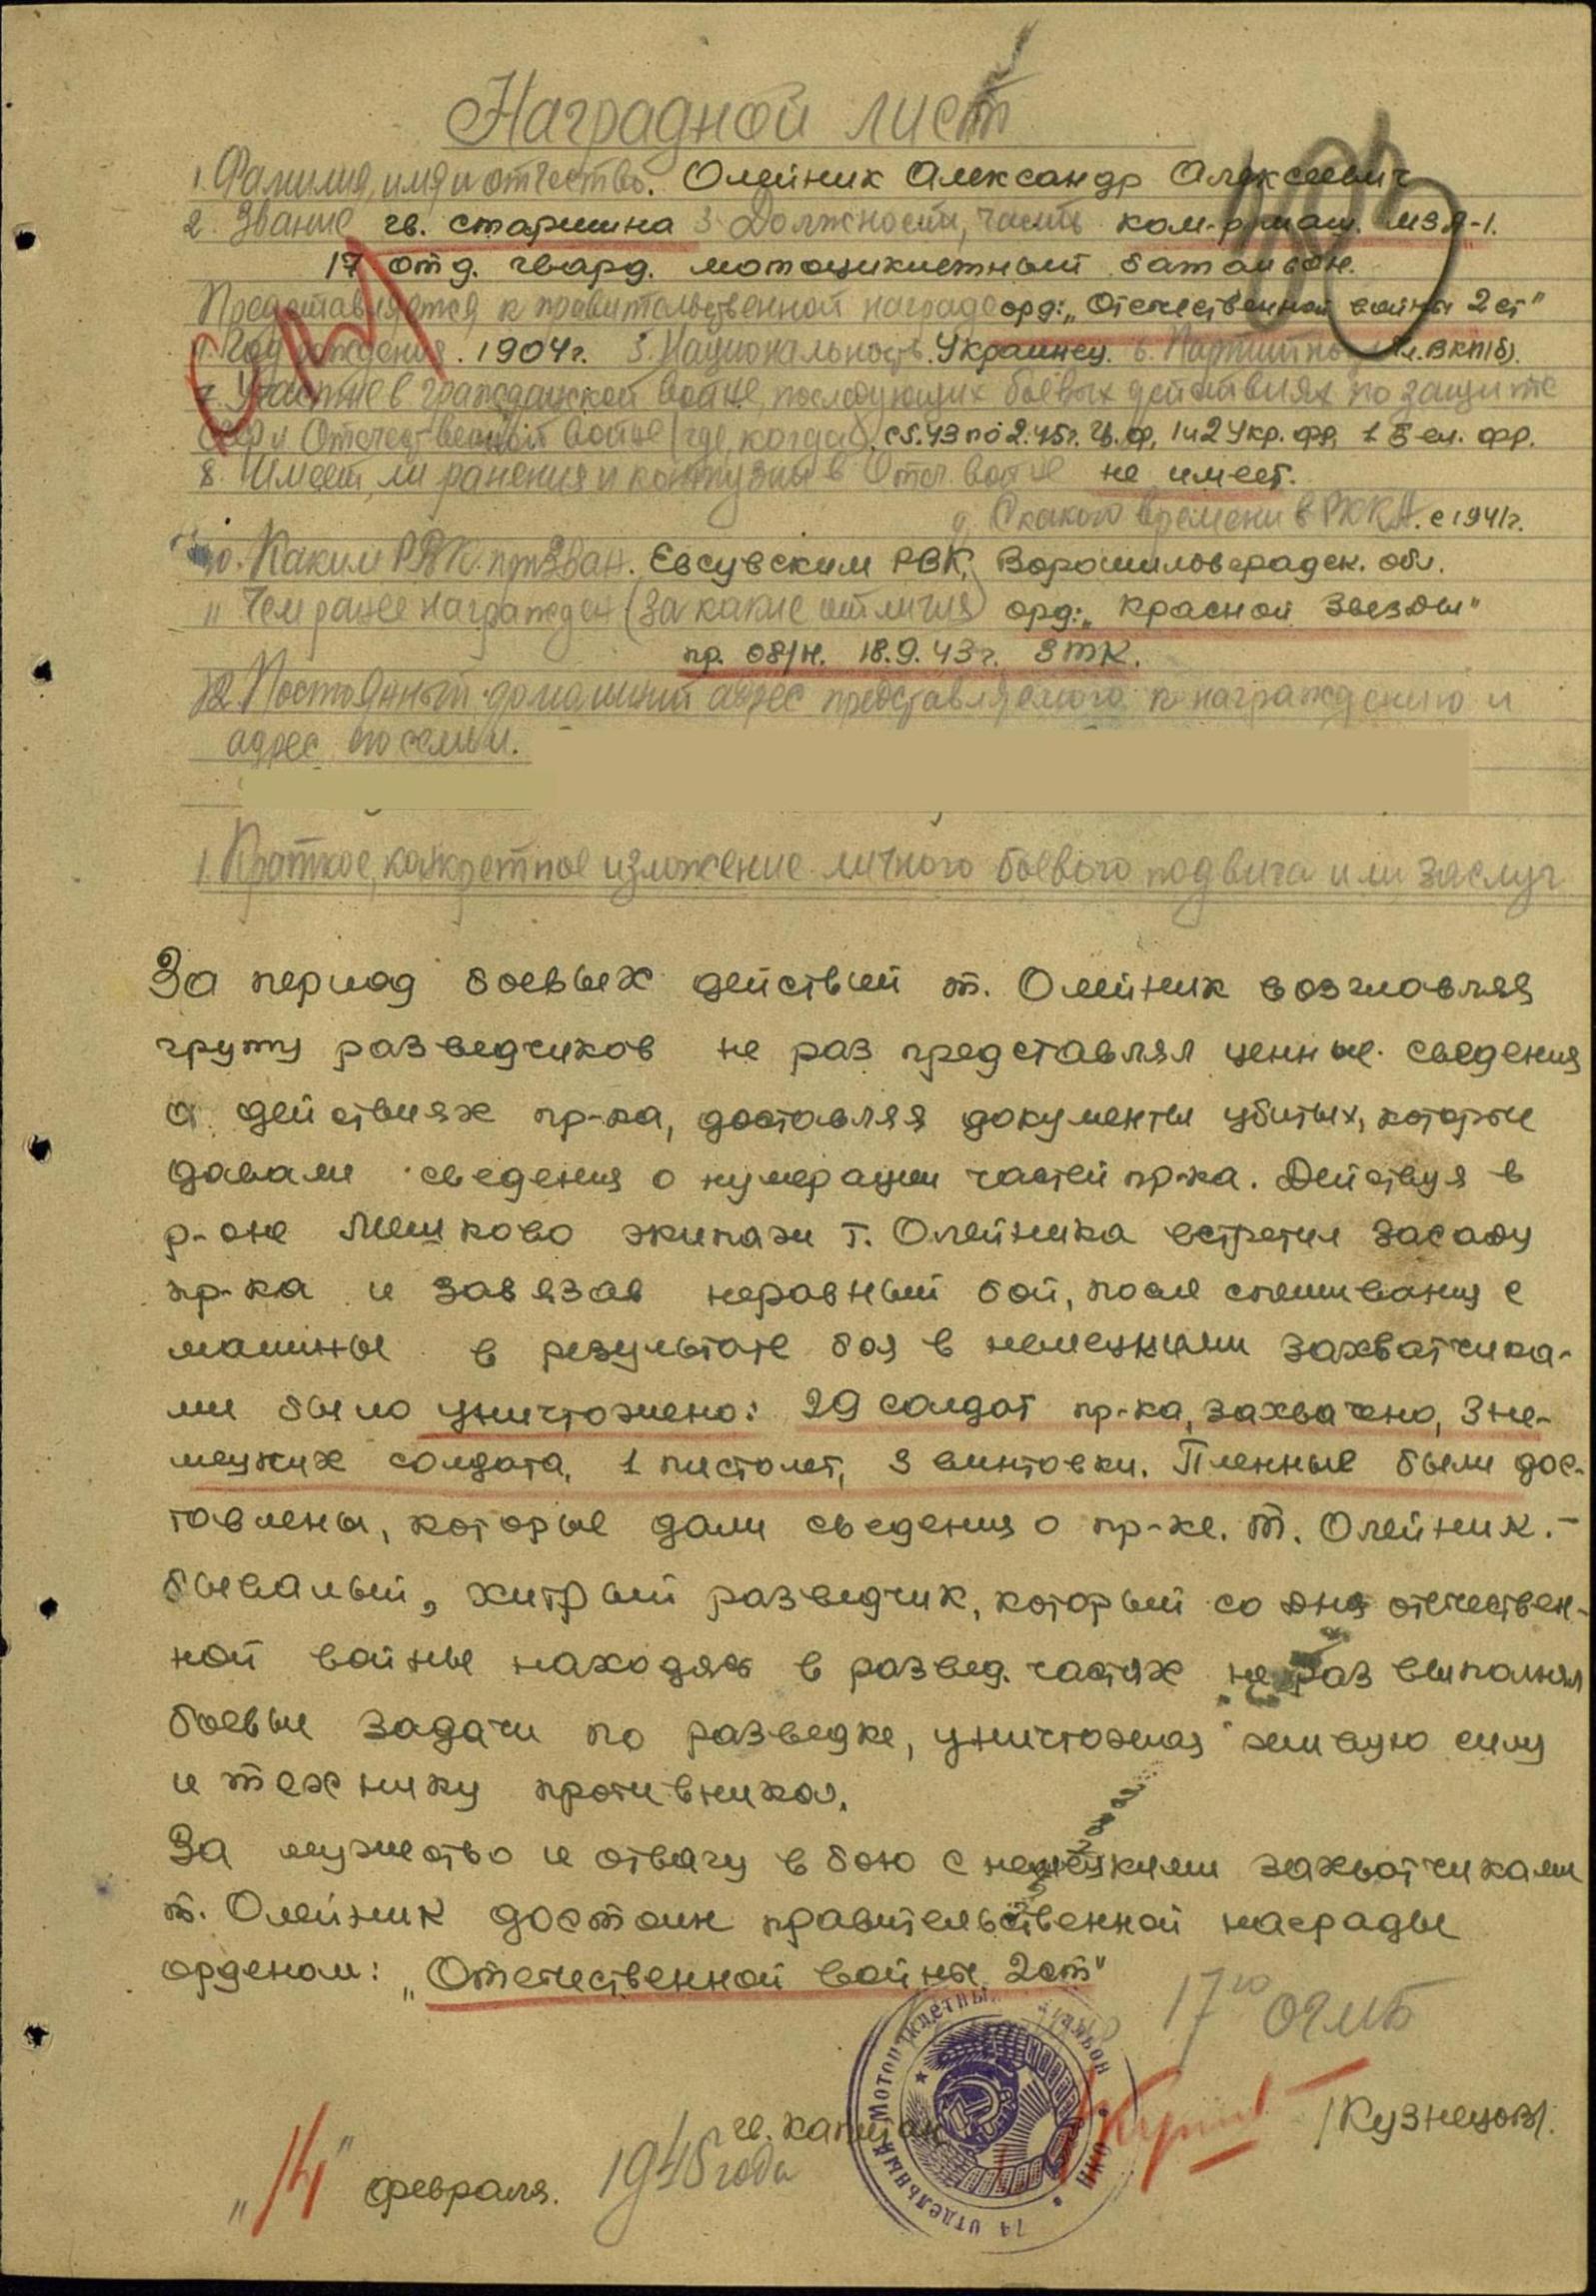 Наградной лист
1. Фамилия, имя и отчество. Олейник Александр Алексеевич
2. Звание гв. старшина 3 Должность, часть ком. МЗА-1.
17 отд. гвард. мотоциклетный батальон.
Представляется к правительственной награде орд: „Отечественной войны 2 ст"
4. Год рождения. 1904 г. 5. Национальность. Украинец. 6. Партийность Чл. ВКП(б).
7. Участие в гражданской войне, последующих боевых действиях по защите
СССР и Отечественной войне (где, когда) с 5.43 по 2.45 г. Ц. ф., 1 и 2 Укр. фр. 1 Бел. фр.
8. Имеет ли ранения и контузии в Отеч. войне не имеет.
9. С какого времени в РККА. с 1941 г.
10. Каким РВК призван. Евсувским РВК, Ворошиловградск. обл.
11 Чем ранее награжден (за какие отличия) орд: „Красной Звезды"
пр. 08/н. 18.9.43 г. 3 ТК.
12 Постоянный домашний адрес представляемого к награждению и
адрес его семьи.
1. Краткое, конкретное изложение личного боевого подвига или заслуг
За период боевых действий т. Олейник возглавляя
групу разведчиков не раз представлял ценные сведения
о действиях пр-ка, доставляя документы убитых, которые
давали сведения о нумерации частей пр-ка. Действуя в
р-оне Мешково экипаж т. Олейника встретил засаду
пр-ка и завязав неравный бой, после спешивания с
машины в результате боя в немецкими захватчика-
ми было уничтожено: 29 солдат пр-ка, захвачено, 3 не-
мецких солдата, 1 пистолет, 3 винтовки. Пленные были дос-
тавлены, которые дали сведения о пр-ке. Т. Олейник.-
бывалый, хитрый разведчик, который со дня отечествен-
ной войны находясь в развед. частях не раз выполнял
боевые задачи по разведке, уничтожая живую силу
и технику противника.
За мужество и отвагу в бою с немецкими захватчиками
т. Олейник достоин правительственной награды
орденом: „Отечественной войны 2 ст"
17го ОГМБ
гв. капитан /Кузнецов/.
„14" февраля. 1945 года
14 отдельный мотоциклетный батальон НКО